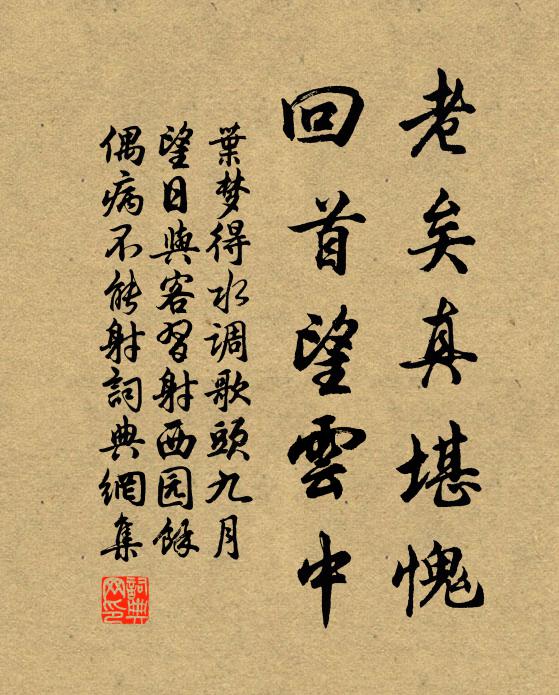 老矣真堪愧
回首望雲中
葉梦得水调歌頭九月
望日與客習射西园餘
偶病不能射詞典網集
詞典网印